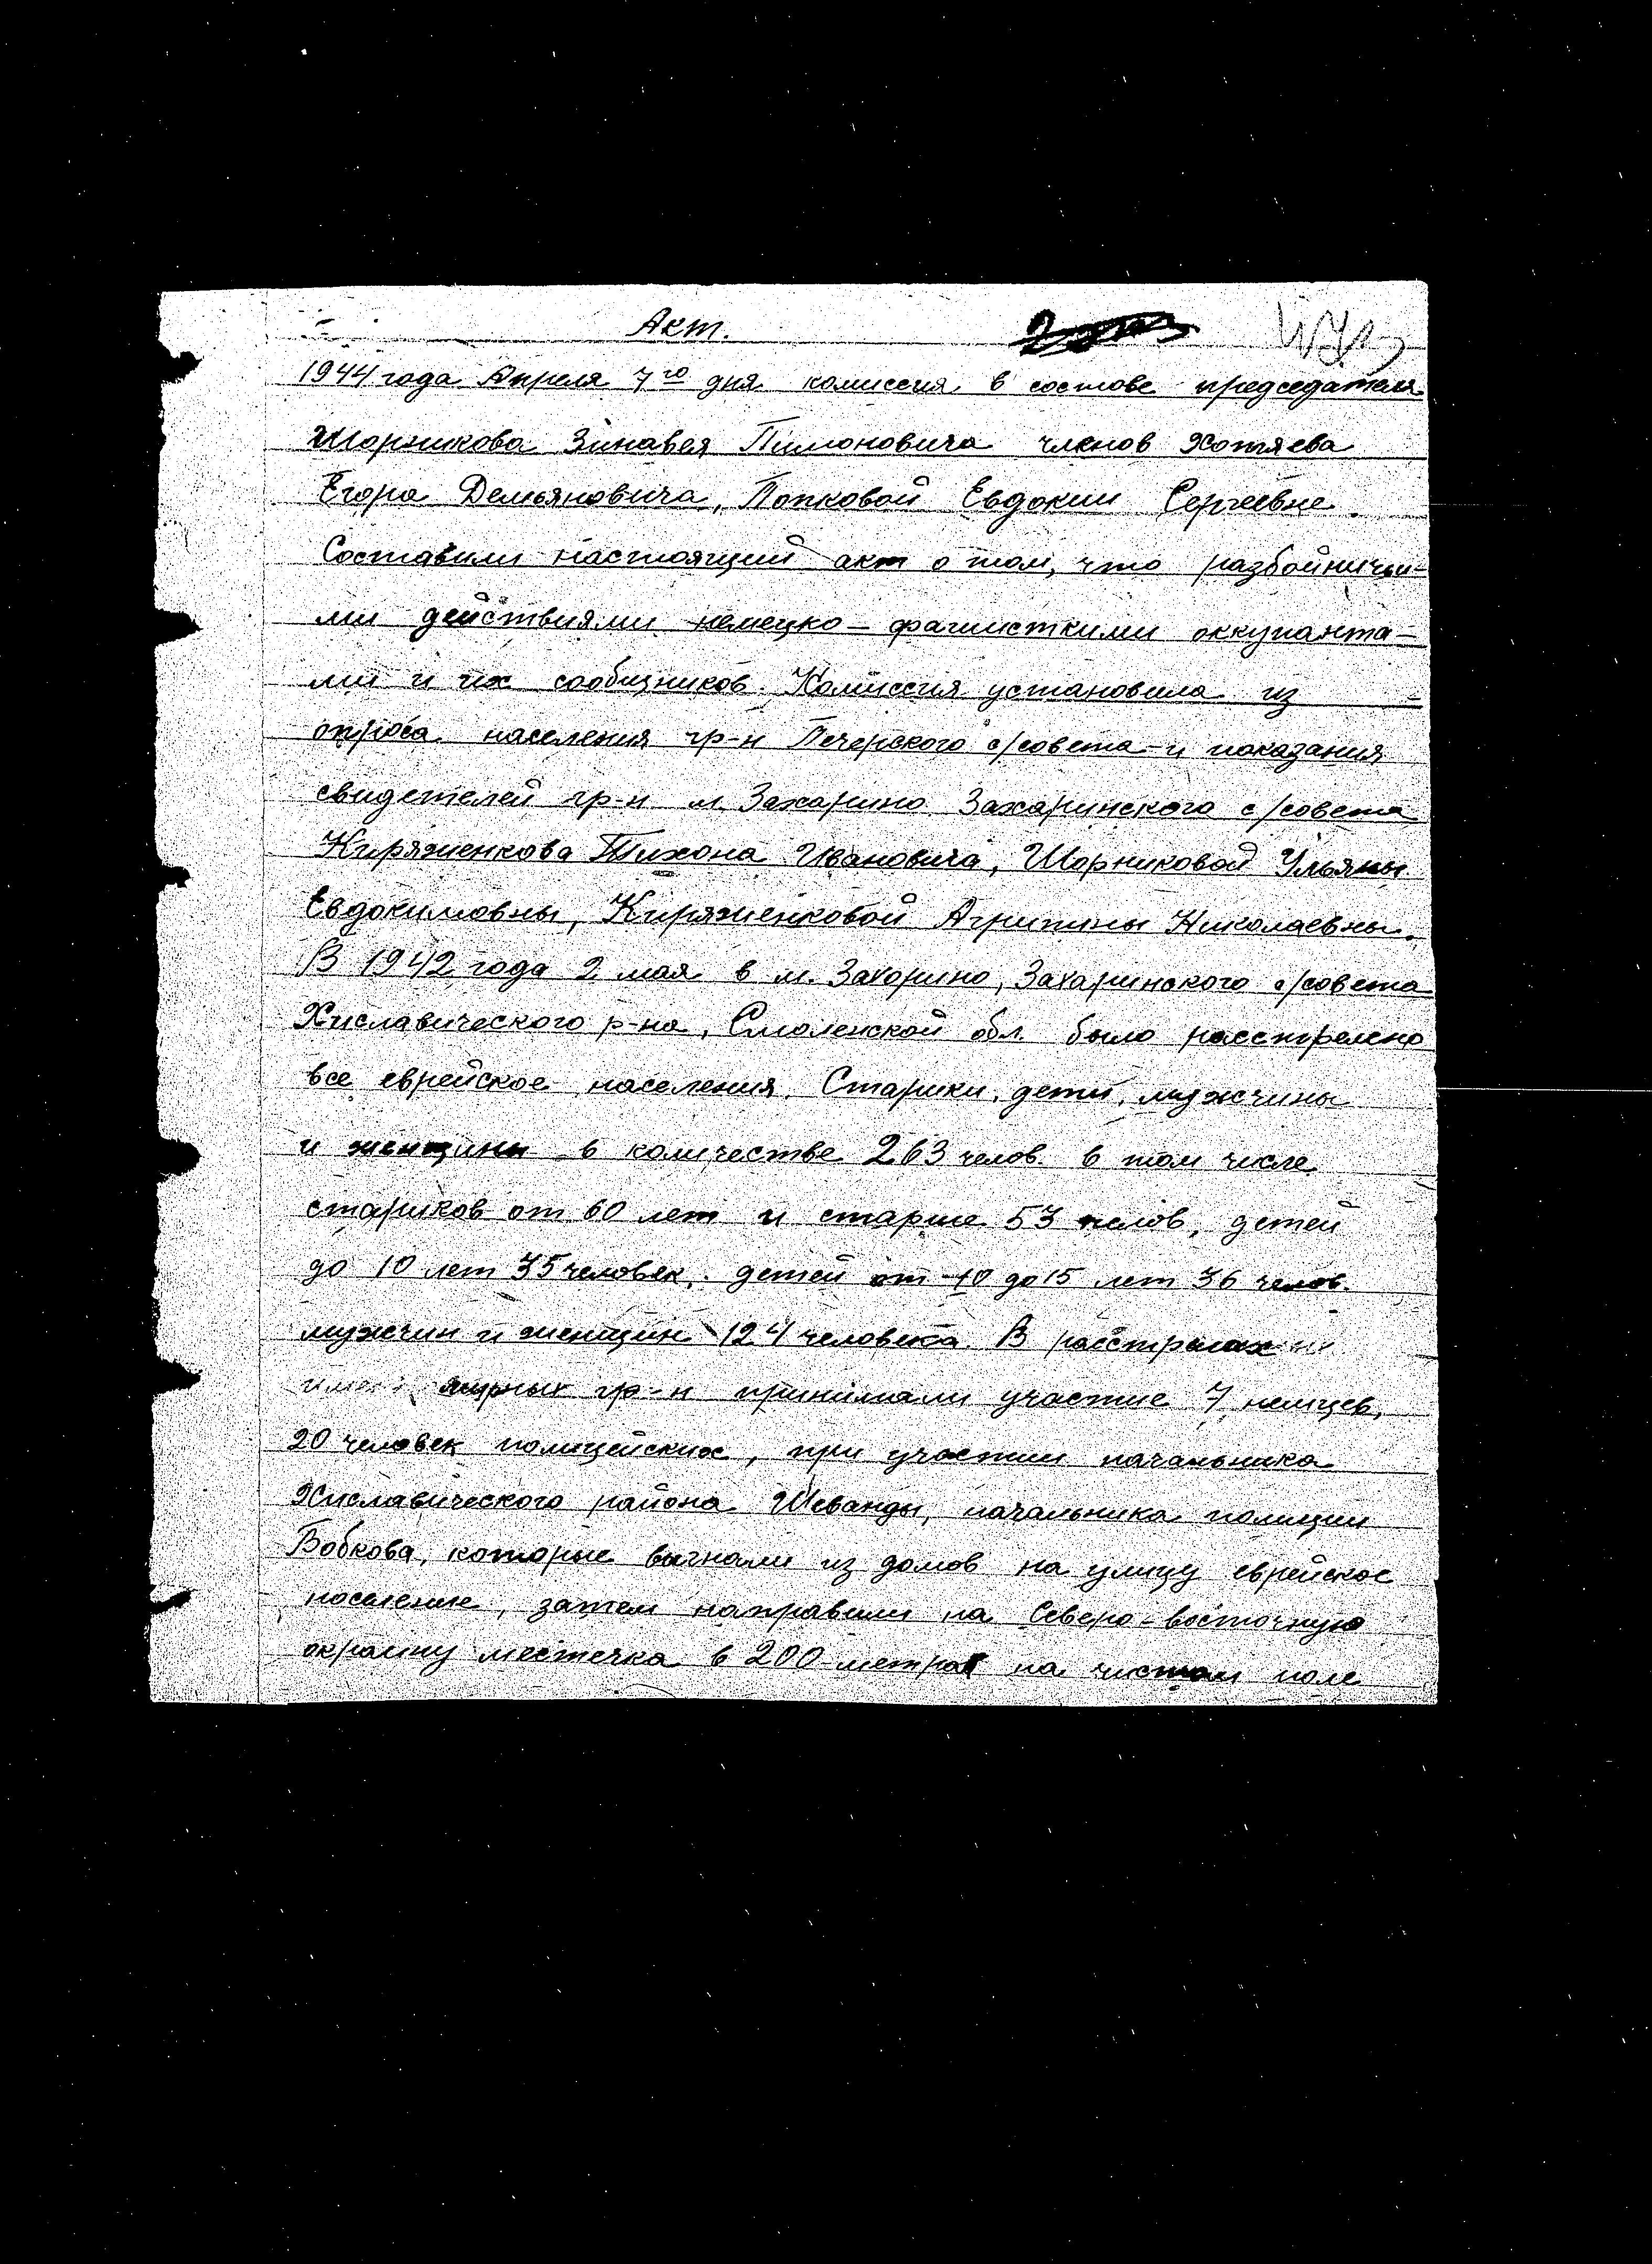 Акт.
1944 года Апреля 7го дня комиссия в составе председателя
Шорникова Зинавея Пимоновича членов Хотяева
Егора Демьяновича, Попковой Евдокии Сергеевне.
Составили настоящий акт о том, что разбойничьи-
ми действиями немецко-фашисткими оккупанта-
ми и их сообщников. Комиссия установила из
опроса населения гр-н Печерского с/совета и показания
свидетелей гр-н м. Захарино Захаринского с/совета
Киряженкова Тихона Ивановича, Шорниковой Ульяны
Евдокимовны, Киряженковой Агрипины Николаевны.
В 1942 года 2 мая в м. Захорино, Захаринского с/совета
Хиславического р-на, Смоленской обл. было расстрелено
все еврейское населения. Старики, дети, мужчины
и женщины в количестве 263 челов. в том числе
стариков от 60 лет и старше 53 челов, детей
до 10 лет 35 человек, детей от 10 до 15 лет 36 челов.
мужчин и женщин 124 человека. В расстрелах
мирных гр-н принимали участие 7 немцев,
20 человек полицейских, при участии начальника
Хиславического района Шеванды, начальника полиции
Бобкова, которые выгнали из домов на улицу еврейское
население, затем направили на Северо-восточную
окраину местечка в 200 метрах на чистом поле